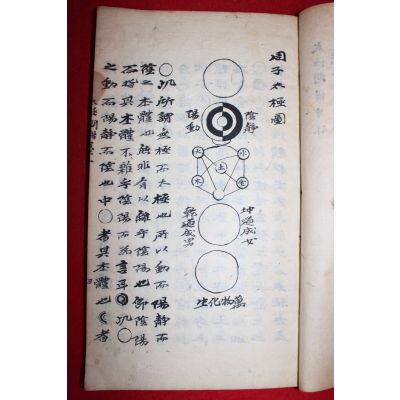 周子太極圖
陰靜
陽動
水
火
土
金
木
坤道成女
乾道成男
萬物化生
○此所謂無極而太極也所以動而陽靜而
陰之本體也然非有以離乎陰陽也即陰陽
而指其本體不雜乎陰陽而爲言耳◎此○
之動而陽靜而陰也中○者其本體也☾者